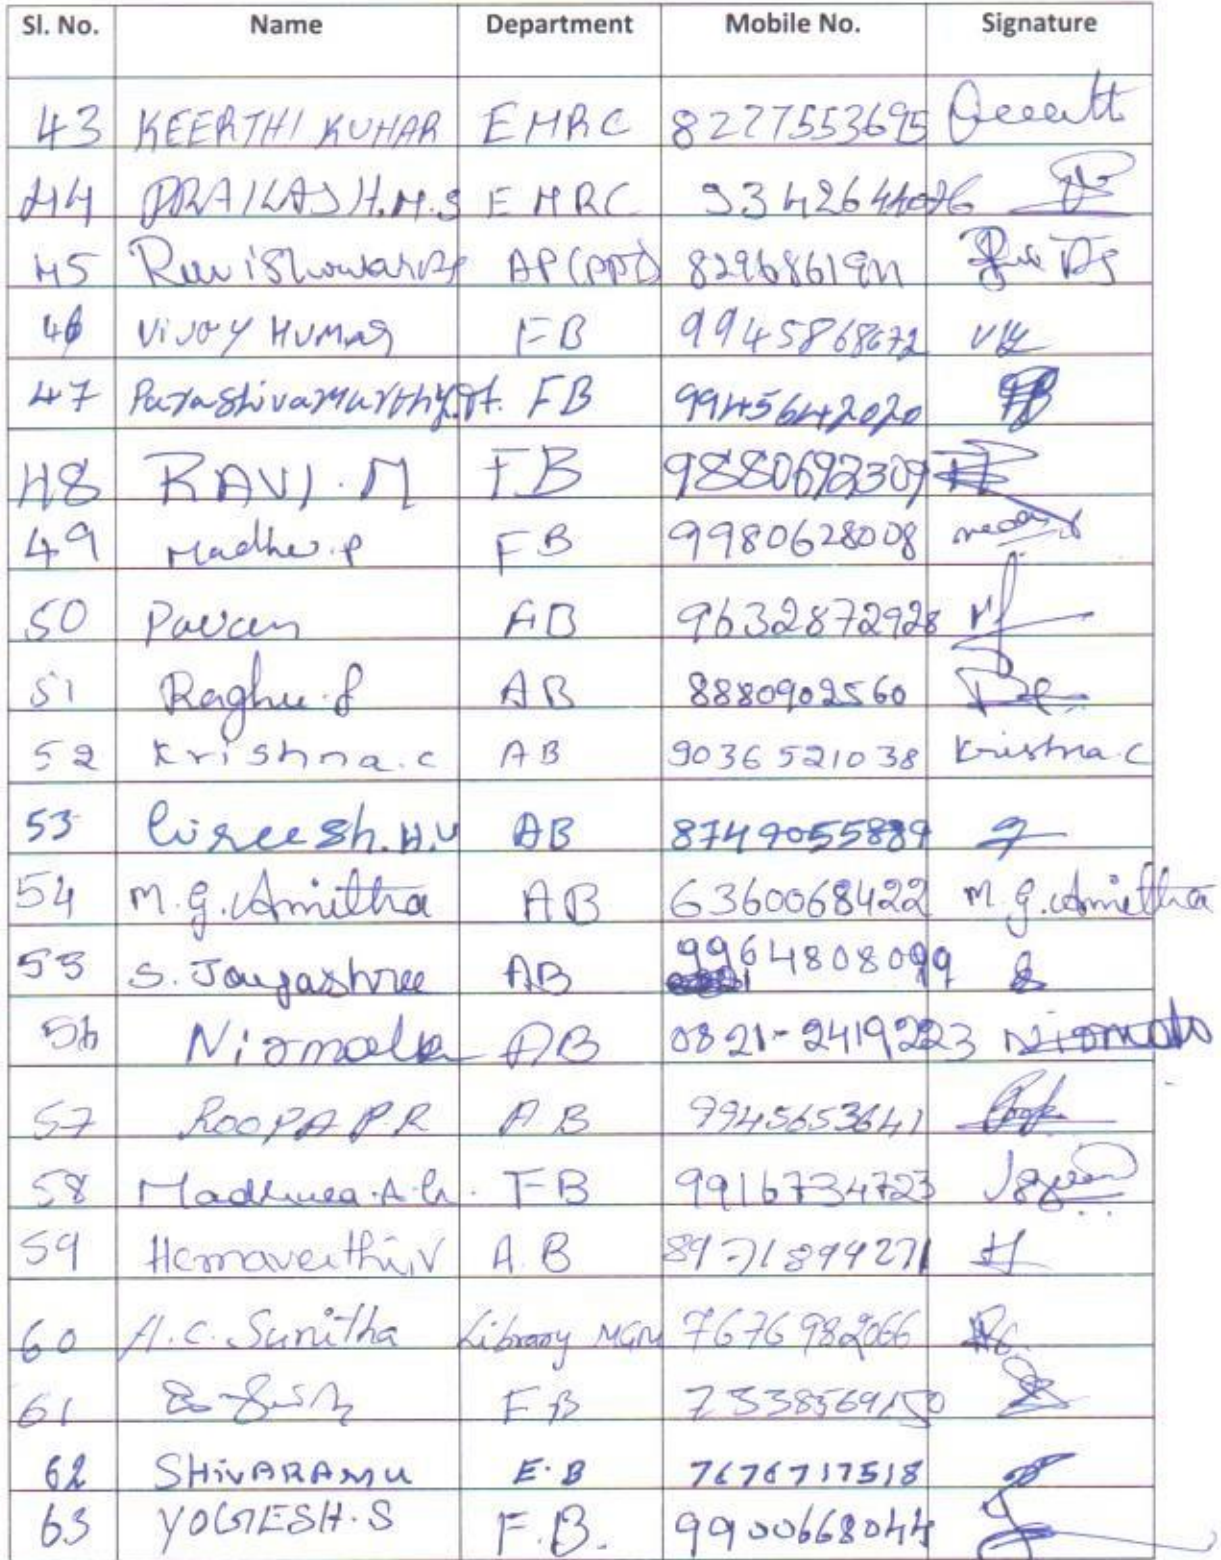 Sl. No. Name Department Mobile No. Signature
43 KEERTHI KUMAR EMRC 8277553695
44 PRAKASH.M.S EMRC 9342644026
45 AP(PPD)
46 Vijay Kumar FB 9945868672 VK
47 Parashivamurthy.H. FB 9945642020
48 RAVI.M FB 9880692309
49 Madhu.P FB 9980628008
50 Pavan AB 9632872928
51 Raghu.S AB 8880902560
52 Krishna.C AB 9036521038 Krishna.C
53 Gireesh.H.V AB 8749055889
54 M.G.Amitha AB 6360068422 M.G.Amitha
55 S. Jayashree AB 9964808099
56 Nirmala AB 0821-2419223 Nirmala
57 ROOPA P.R AB 9945653641
58 FB 9916734723
59 Hemavathi.V A.B 8971899271 H
60 H.C. Sunitha Library MGM 7676982066
61 FB 7338569150
62 SHIVARAMU E.B 7676717518
63 YOGESH.S F.B. 9900668044